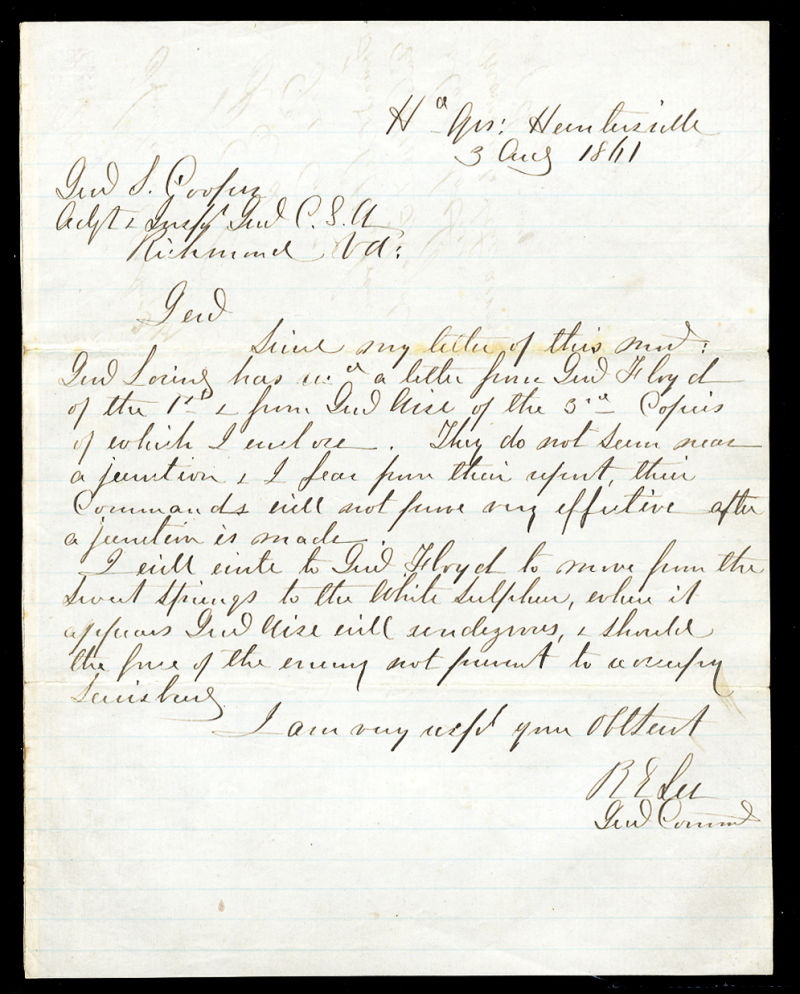 Hd Qrs: Huntersville
3 Aug 1861
Genl S. Cooper
Adjt & Inspr Genl C. S. A
Richmond Va:
Genl
Since my letter of this mor:
Genl Loring has recd a letter from Genl Floyd
of the 1st & from Genl Wise of the 3rd Copies
of which I enclose. They do not seem near
a junction & I fear from their report, their
Commands will not prove very effective after
a junction is made.
I will write to Genl. Floyd to move from the
Sweet Springs to the White Sulphur, where it
appears Genl Wise will rendezvous, & should
the force of the enemy not prevent to reoccupy
Lewisburg
I am very respt your Obt Servt
R E Lee
Genl Commd